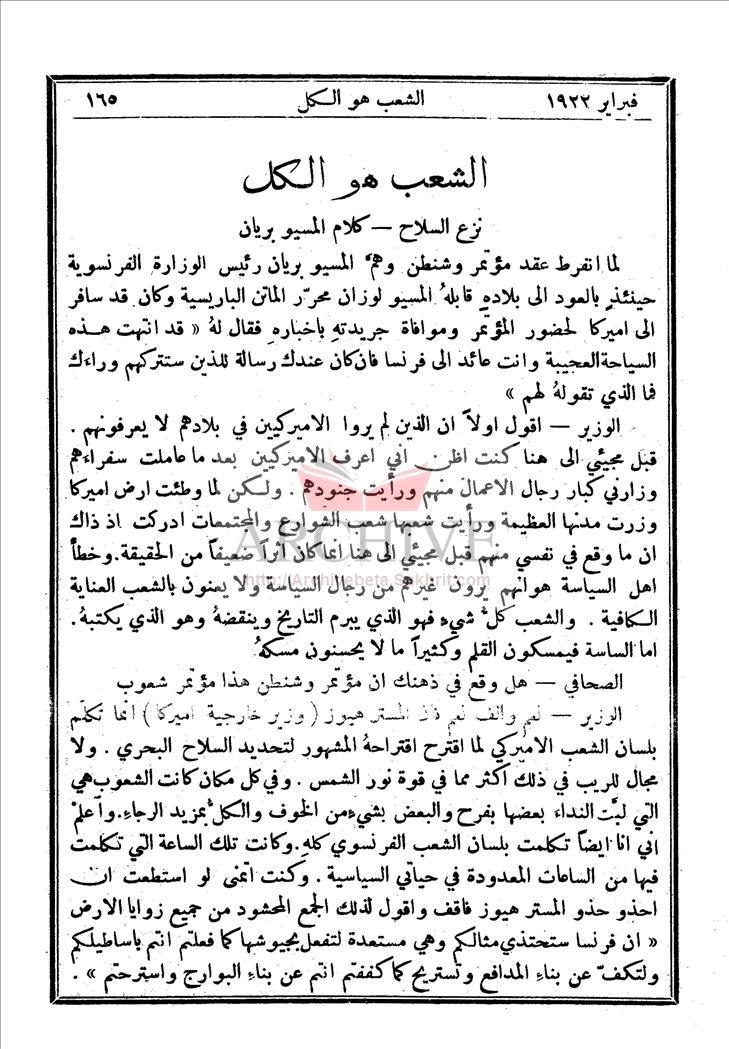 فبراير ١٩٢٢ الشعب هو الكل ١٦٥
الشعب هو الكل
نزع السلاح — كلام المسيو بريان
لما انفرط عقد مؤتمر وشنطن وهمَّ المسيو بريان رئيس الوزارة الفرنسوية
حينئذٍ بالعود الى بلاده قابلهُ المسيو لوزان محرّر الماتن الباريسية وكان قد سافر
الى اميركا لحضور المؤتمر وموافاة جريدتهِ باخباره فقال لهُ « قد انتهت هذه
السياحة العجيبة وانت عائد الى فرنسا فان كان عندك رسالة للذين ستتركهم وراءك
فما الذي تقولهُ لهم »
الوزير — اقول اولاً ان الذين لم يروا الاميركيين في بلادهم لا يعرفونهم .
قبل مجيئي الى هنا كنت اظن اني اعرف الاميركيين بعد ما عاملت سفراءهم
وزارني كبار رجال الاعمال منهم ورأيت جنودهم . ولكن لما وطئت ارض اميركا
وزرت مدنها العظيمة ورأيت شعبها شعب الشوارع والمجتمعات ادركت اذ ذاك
ان ما وقع في نفسي منهم قبل مجيئي الى هنا انما كان أثراً ضعيفاً من الحقيقة . وخطأ
اهل السياسة هو انهم يرون غيرهم من رجال السياسة ولا يعنون بالشعب العناية
الكافية . والشعب كل شيءٍ فهو الذي يبرم التاريخ وينقضهُ وهو الذي يكتبهُ .
اما الساسة فيمسكون القلم وكثيراً ما لا يحسنون مسكهُ
الصحافي — هل وقع في ذهنك ان مؤتمر وشنطن هذا مؤتمر شعوب
الوزير — نعم والف نعم فان المستر هيوز ( وزير خارجية اميركا ) انما تكلم
بلسان الشعب الاميركي لما اقترح اقتراحهُ المشهور لتحديد السلاح البحري . ولا
مجال للريب في ذلك اكثر مما في قوة نور الشمس . وفي كل مكان كانت الشعوب هي
التي لبَّت النداء بعضها بفرح والبعض بشيءٍ من الخوف والكلُّ بمزيد الرجاءِ . وأعلم
اني انا ايضاً تكلمت بلسان الشعب الفرنسوي كلهِ . وكانت تلك الساعة التي تكلمت
فيها من الساعات المعدودة في حياتي السياسية . وكنت اتمنى لو استطعت ان
احذو حذو المستر هيوز فاقف واقول لذلك الجمع المحشود من جميع زوايا الارض
« ان فرنسا ستحتذي مثالكم وهي مستعدة لتفعل بجيوشها كما فعلتم انتم باساطيلكم
ولتكفّ عن بناءِ المدافع وتستريح كما كففتم انتم عن بناءِ البوارج واسترحتم » .
ARCHIVE
http://Archivebeta.Sakhrit.com